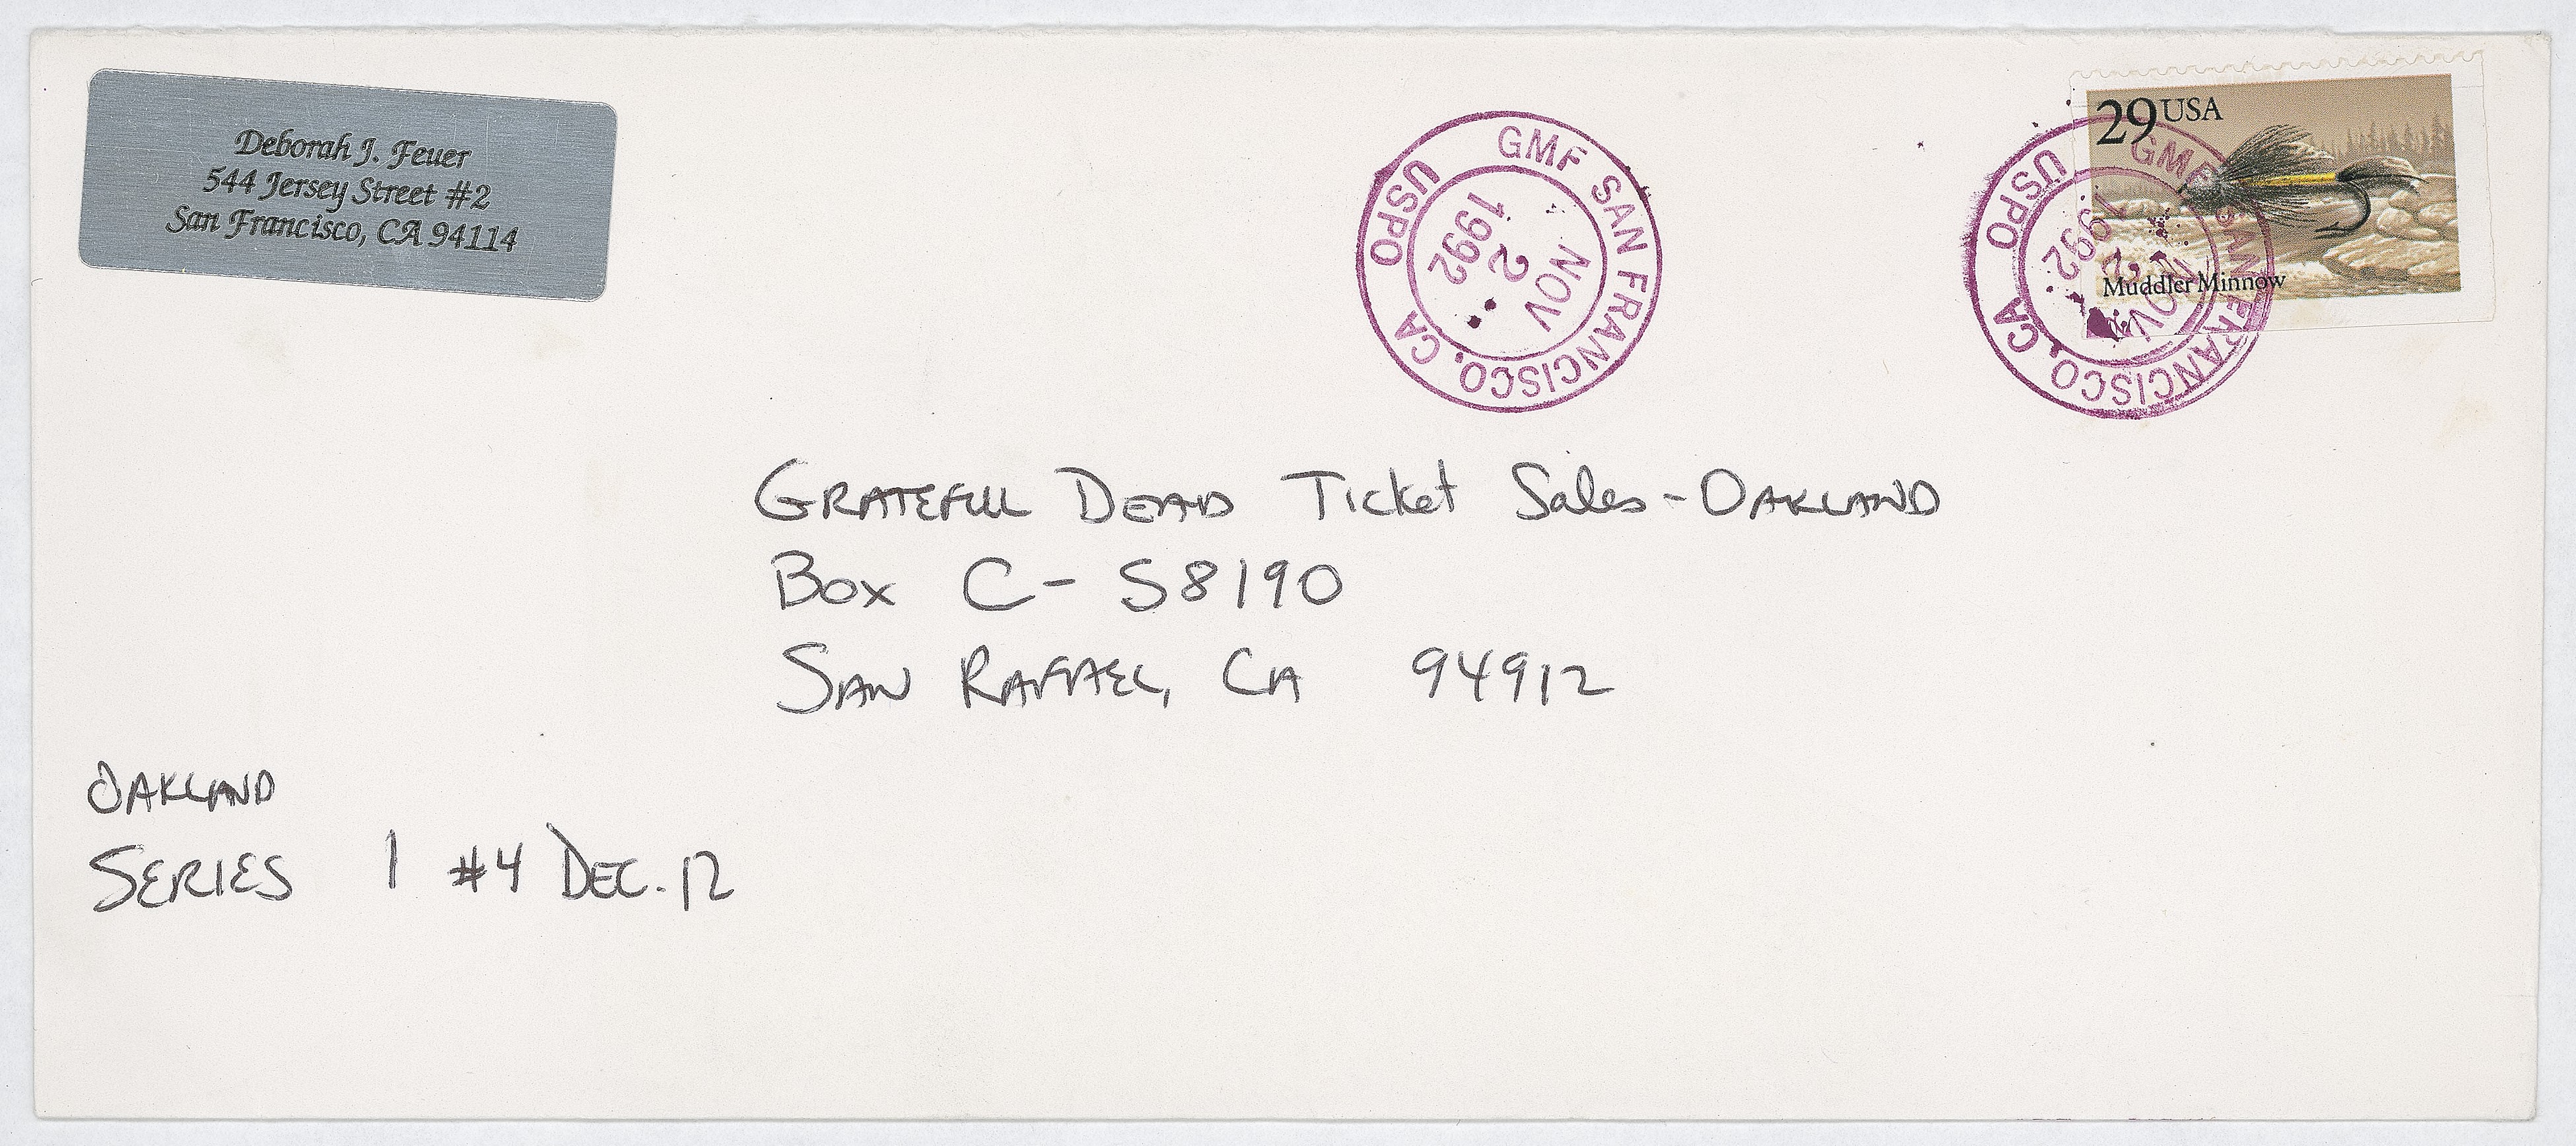 Deborah J. Feuer
544 Jersey Street #2
San Francisco, CA 94114
GMF SAN FRANCISCO, CA
USPO
NOV
2
1992
29 USA
Muddler Minnow
GMF SAN FRANCISCO, CA
USPO
NOV
2
1992
GRATEFUL DEAD Ticket Sales - OAKLAND
Box C- S8190
SAN RAFAEL, CA 94912
OAKLAND
SERIES 1 #4 DEC. 12